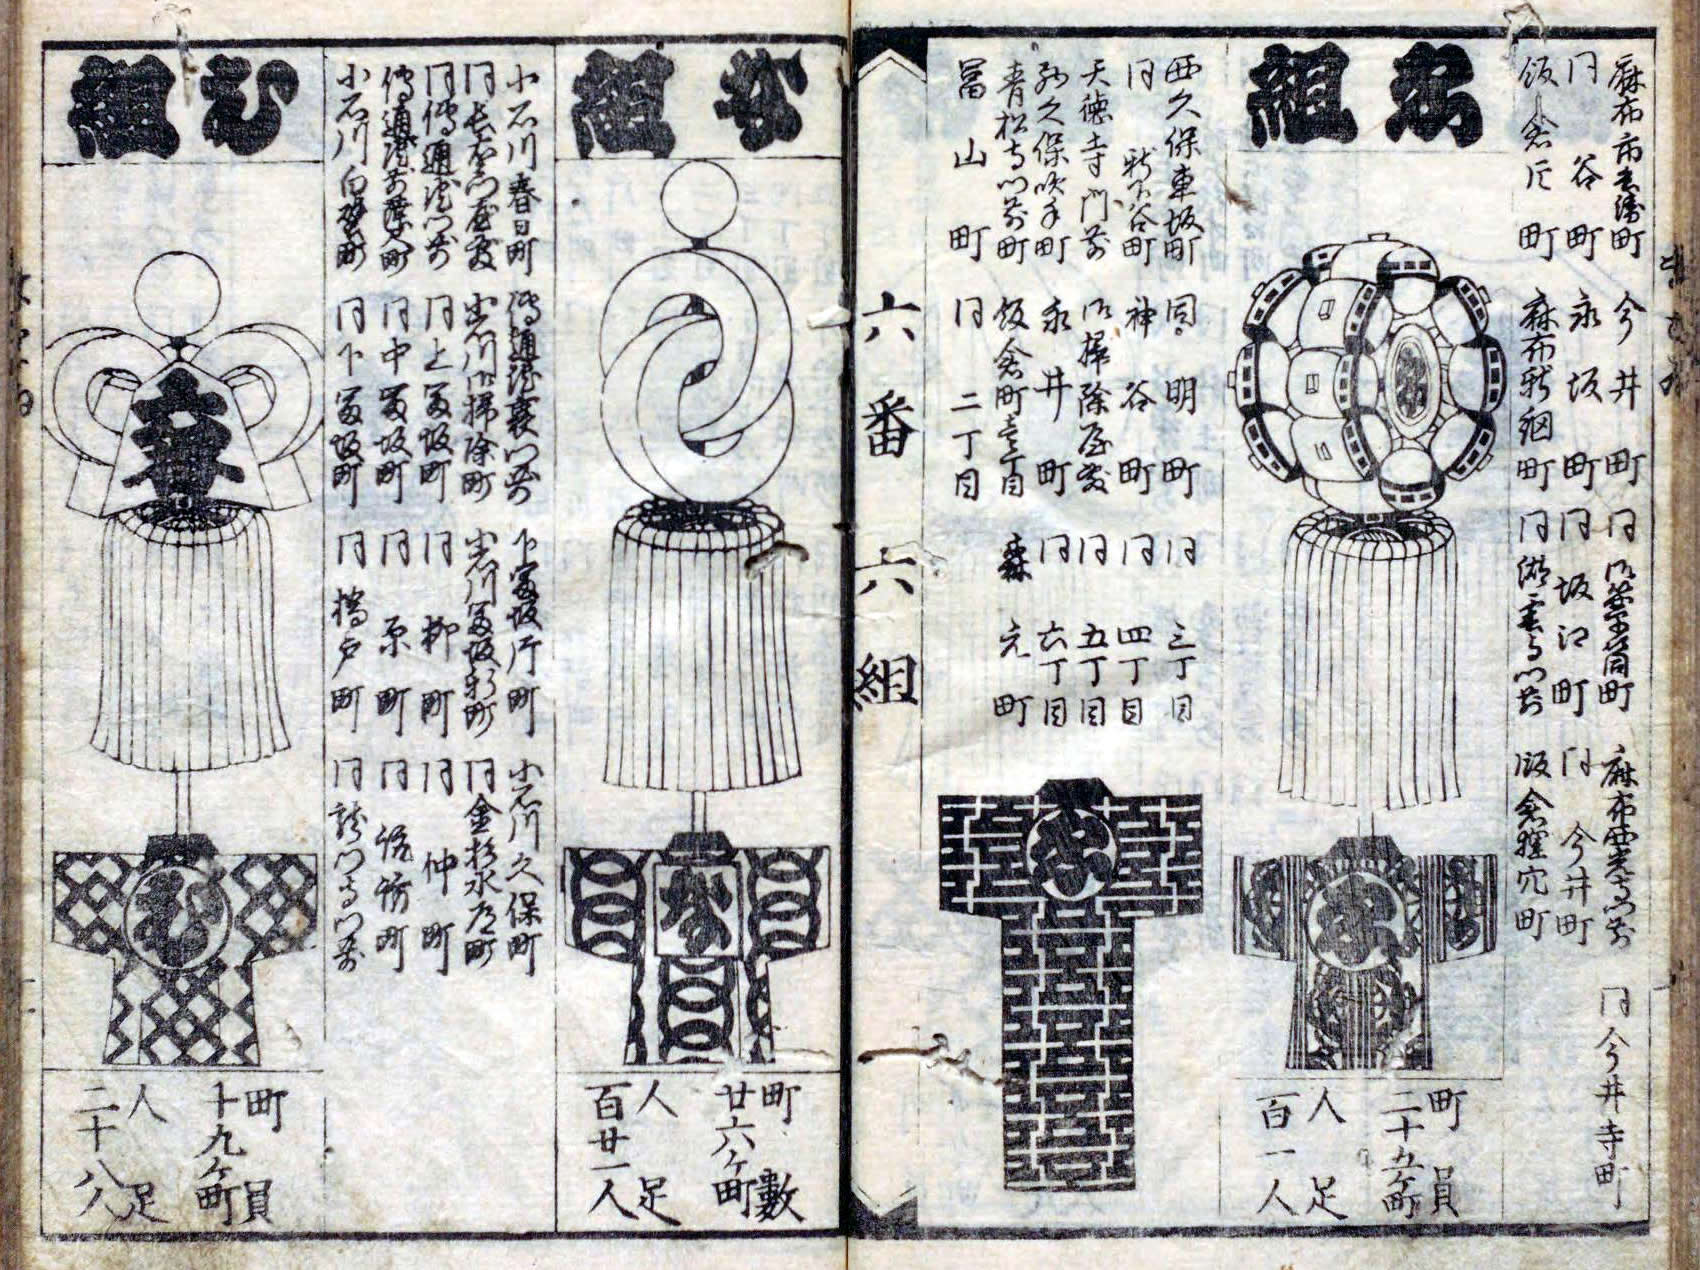 麻布市兵衛町
今井町
同御箪笥町
同今井寺町
同谷町
永坂町
同坂江町
同今井町
飯倉片町
麻布新網町
飯倉狸穴町
組
町員
二十五ケ町
人足
百一人
西久保車坂町
同明町
同三丁目
同新下谷町
神谷町
同四丁目
天徳寺門前
御掃除屋敷
同五丁目
西久保吹手町
永井町
同六丁目
青松寺門前町
飯倉町壱丁目
森元町
冨山町
同二丁目
六番
六組
な組
町數
廿六ケ町
人足
百廿一人
小石川春日町
傳通院裏門前
下冨坂片町
小石川久保町
小石川御掃除町
小石川冨坂新町
同金杉水道町
同傳通院門前
同上冨坂町
同柳町
同仲町
同中冨坂町
同原町
小石川白壁町
同下冨坂町
同橋戸町
同龍門寺門前
む組
む
町員
十九ケ町
人足
二十八人